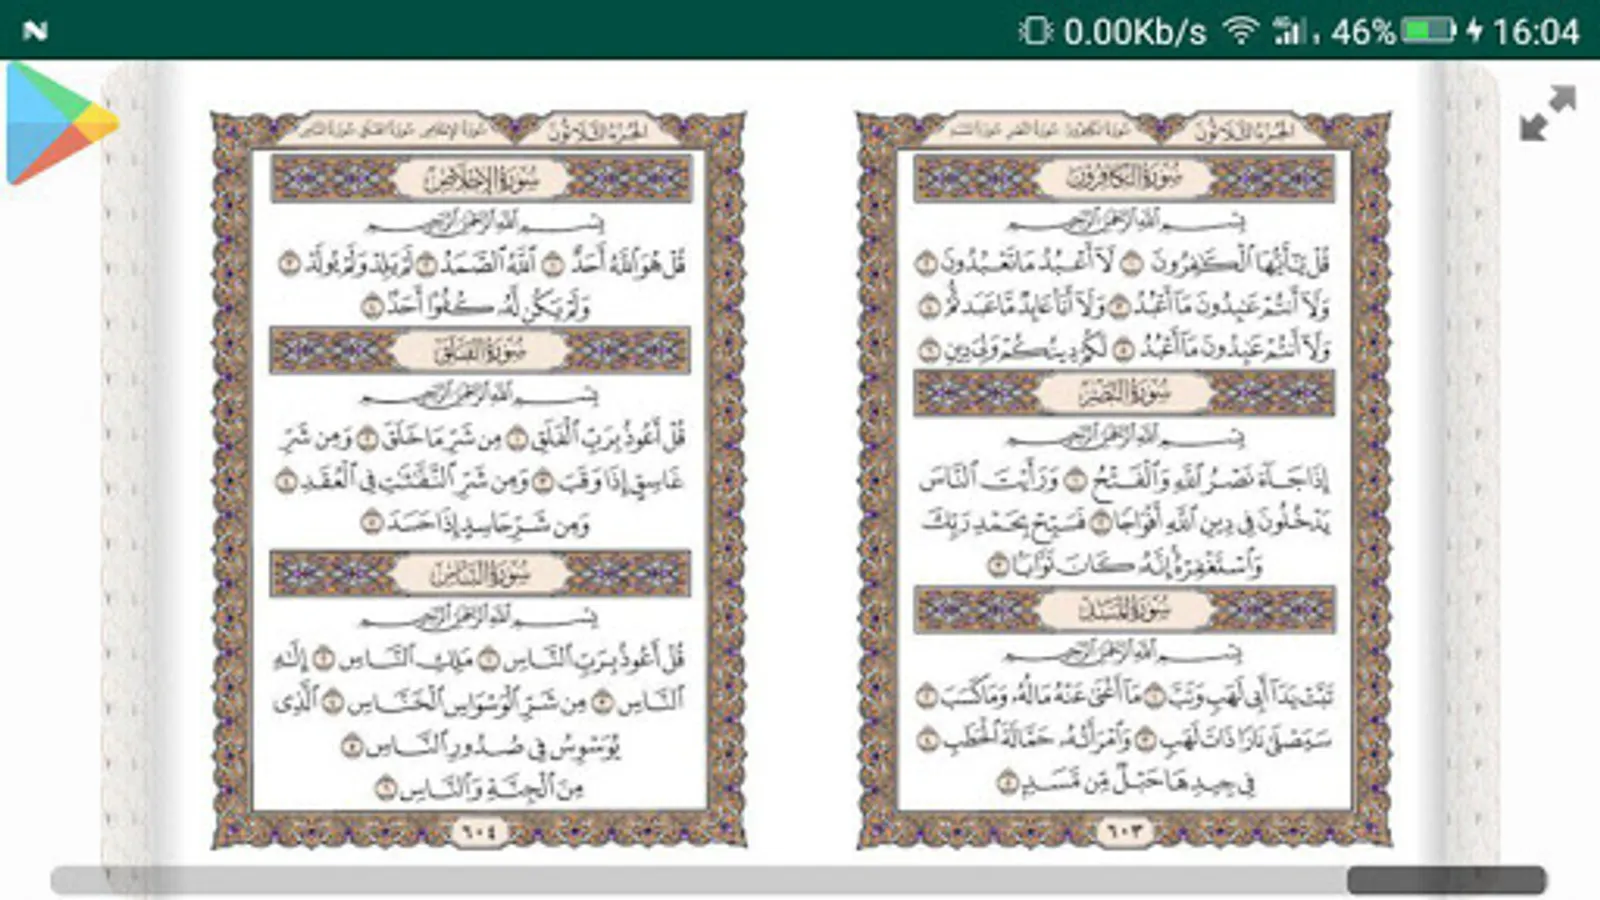 0.00Kb/s 46% 16:04
الجزء الثلاثون سورة الكافرون سورة النصر سورة المسد
سُورَةُ الكَافِرُونَ
بِسْمِ اللَّهِ الرَّحْمَٰنِ الرَّحِيمِ
قُلْ يَٰٓأَيُّهَا ٱلْكَٰفِرُونَ ١ لَآ أَعْبُدُ مَا تَعْبُدُونَ ٢
وَلَآ أَنتُمْ عَٰبِدُونَ مَآ أَعْبُدُ ٣ وَلَآ أَنَا۠ عَابِدٌ مَّا عَبَدتُّمْ ٤
وَلَآ أَنتُمْ عَٰبِدُونَ مَآ أَعْبُدُ ٥ لَكُمْ دِينُكُمْ وَلِىَ دِينِ ٦
سُورَةُ النَّصْرِ
بِسْمِ اللَّهِ الرَّحْمَٰنِ الرَّحِيمِ
إِذَا جَآءَ نَصْرُ ٱللَّهِ وَٱلْفَتْحُ ١ وَرَأَيْتَ ٱلنَّاسَ
يَدْخُلُونَ فِى دِينِ ٱللَّهِ أَفْوَاجًا ٢ فَسَبِّحْ بِحَمْدِ رَبِّكَ
وَٱسْتَغْفِرْهُ إِنَّهُۥ كَانَ تَوَّابًۢا ٣
سُورَةُ المَسَدِ
بِسْمِ اللَّهِ الرَّحْمَٰنِ الرَّحِيمِ
تَبَّتْ يَدَآ أَبِى لَهَبٍ وَتَبَّ ١ مَآ أَغْنَىٰ عَنْهُ مَالُهُۥ وَمَا كَسَبَ ٢
سَيَصْلَىٰ نَارًا ذَاتَ لَهَبٍ ٣ وَٱمْرَأَتُهُۥ حَمَّالَةَ ٱلْحَطَبِ ٤
فِى جِيدِهَا حَبْلٌ مِّن مَّسَدٍۭ ٥
٦٠٣
الجزء الثلاثون سورة الإخلاص سورة الفلق سورة الناس
سُورَةُ الإِخْلَاصِ
بِسْمِ اللَّهِ الرَّحْمَٰنِ الرَّحِيمِ
قُلْ هُوَ ٱللَّهُ أَحَدٌ ١ ٱللَّهُ ٱلصَّمَدُ ٢ لَمْ يَلِدْ وَلَمْ يُولَدْ ٣
وَلَمْ يَكُن لَّهُۥ كُفُوًا أَحَدٌۢ ٤
سُورَةُ الفَلَقِ
بِسْمِ اللَّهِ الرَّحْمَٰنِ الرَّحِيمِ
قُلْ أَعُوذُ بِرَبِّ ٱلْفَلَقِ ١ مِن شَرِّ مَا خَلَقَ ٢ وَمِن شَرِّ
غَاسِقٍ إِذَا وَقَبَ ٣ وَمِن شَرِّ ٱلنَّفَّٰثَٰتِ فِى ٱلْعُقَدِ ٤
وَمِن شَرِّ حَاسِدٍ إِذَا حَسَدَ ٥
سُورَةُ النَّاسِ
بِسْمِ اللَّهِ الرَّحْمَٰنِ الرَّحِيمِ
قُلْ أَعُوذُ بِرَبِّ ٱلنَّاسِ ١ مَلِكِ ٱلنَّاسِ ٢ إِلَٰهِ
ٱلنَّاسِ ٣ مِن شَرِّ ٱلْوَسْوَاسِ ٱلْخَنَّاسِ ٤ ٱلَّذِى
يُوَسْوِسُ فِى صُدُورِ ٱلنَّاسِ ٥
مِنَ ٱلْجِنَّةِ وَٱلنَّاسِ ٦
٦٠٤